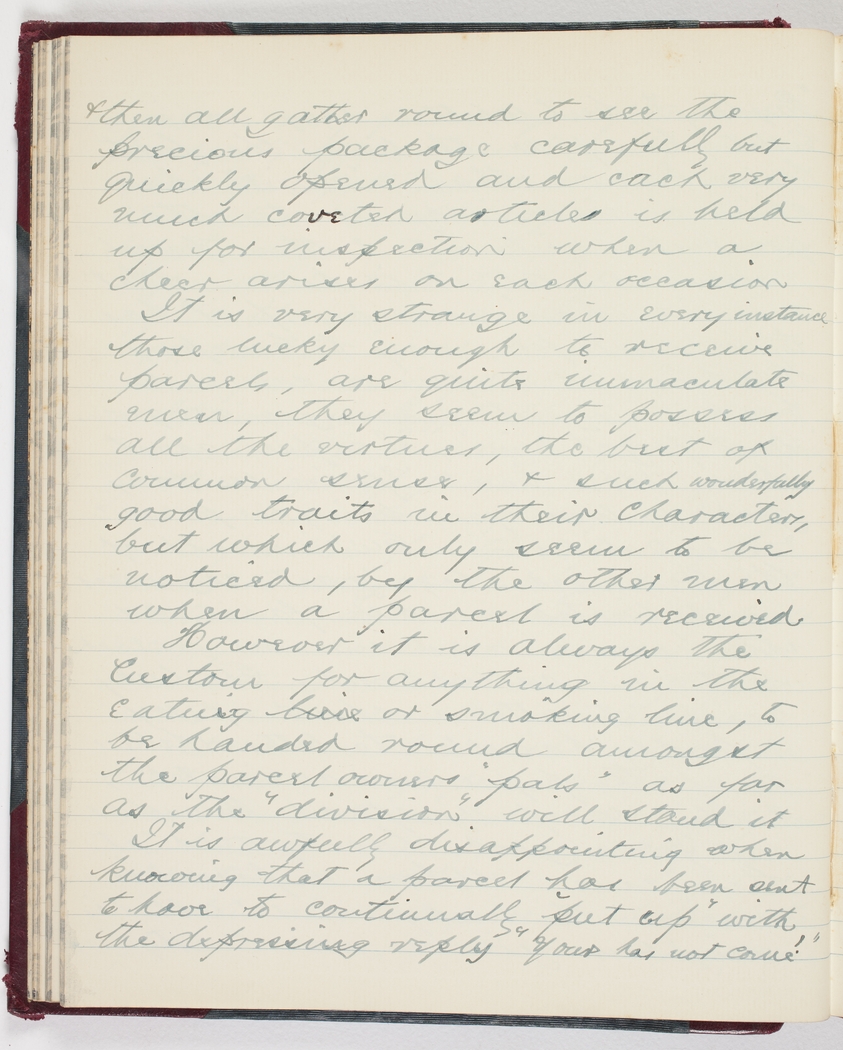 & then all gather round to see the
precious package carefully but
quickly opened and each very
much coveted articles is held
up for inspection when a
cheer arises on each occasion
It is very strange in every instance
those lucky enough to receive
parcels, are quite immaculate
men, they seem to possess
all the virtues, the best of
common sense, & such wonderfully
good traits in their characters,
but which only seem to be
noticed, by the other men
when a parcel is received
However it is always the
Custom for anything in the
Eating line or smoking line, to
be handed round amongst
the parcel owners "pals" as far
as the "division" will stand it
It is awfully disappointing when
knowing that a parcel has been sent
to have to continually "put up" with,
the depressing reply "Yours has not come!"